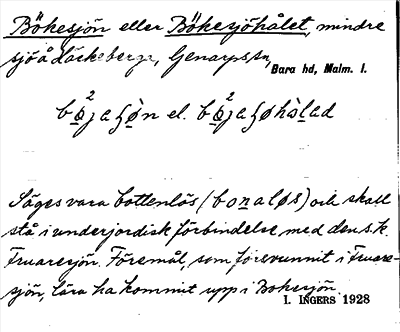 Bökesjön eller Bökesjöhålet, mindre
sjö å Häckeberga, Genarps sn,
Bara hd, Malm. l.
el.
Säges vara bottenlös (bonaløs) och skall
stå i underjordisk förbindelse med den s.k.
Fruaresjön. Föremål, som försvunnit i Fruare-
sjön, lära ha kommit upp i Bökesjön.
I. INGERS 1928